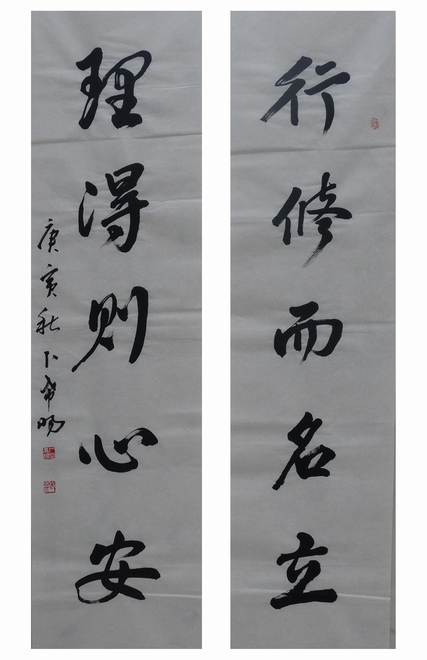 行修而名立
理得则心安
庚寅秋卜希旸